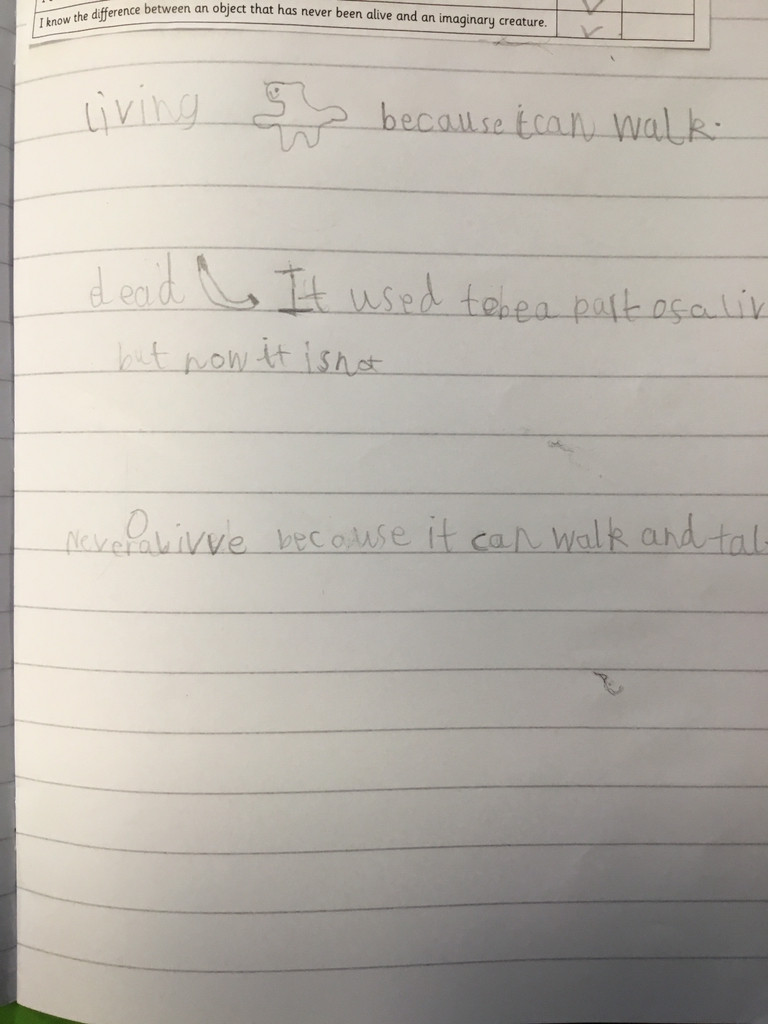 I know the difference between an object that has never been alive and an imaginary creature.
living because it can walk.
dead It used to be a part of a liv
but now it is not
Never alivve because it can walk and tal